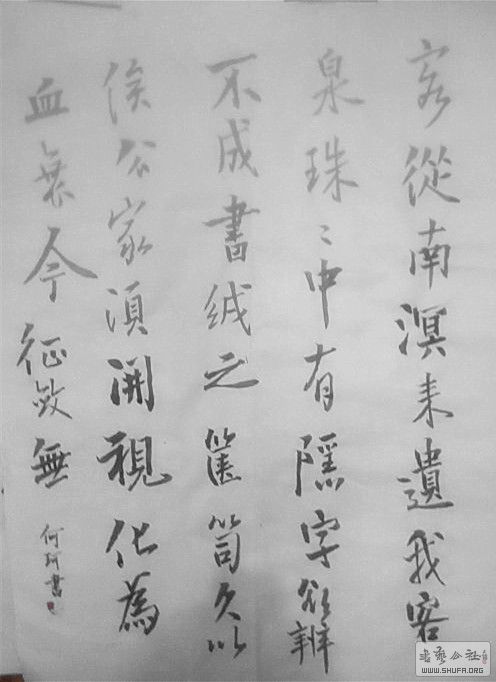 客從南溟来遺我客
泉珠〻中有隱字欲辨
不成書緘之篋笥久以
俟公家須開視化為
血哀今征斂無
何珂書
書藝公社
WWW.SHUFA.ORG